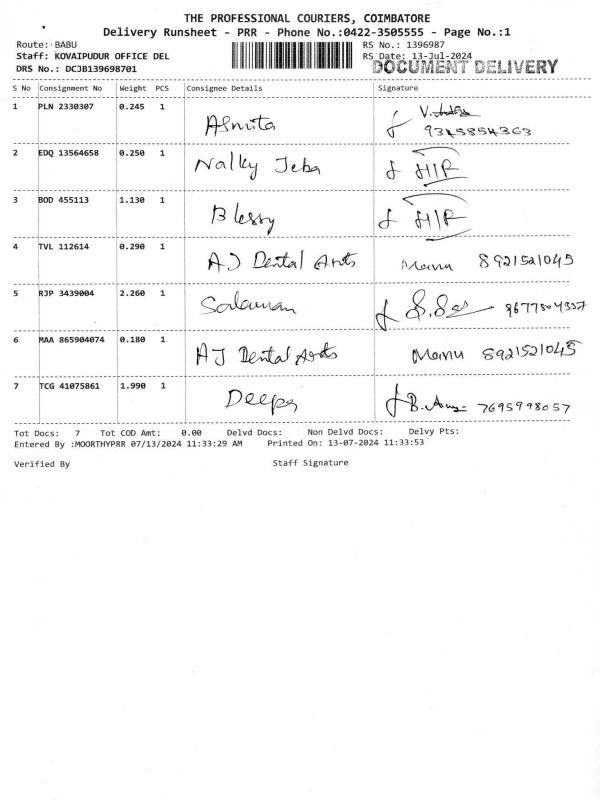 THE PROFESSIONAL COURIERS, COIMBATORE
Delivery Runsheet - PRR - Phone No.:0422-3505555 - Page No.:1
Route: BABU RS No.: 1396987
Staff: KOVAIPUDUR OFFICE DEL RS Date: 13-Jul-2024
DRS No.: DCJB139698701 DOCUMENT DELIVERY
S No Consignment No Weight PCS Consignee Details Signature
1 PLN 2330307 0.245 1 Asmita V.
9345854363
2 EDQ 13564658 0.250 1 Nalky Jeba HIF
3 BOD 455113 1.130 1 Blessy HIF
4 TVL 112614 0.290 1 AJ Dental Arts Manu 8921521045
5 RJP 3439004 2.260 1 9677804337
6 MAA 865904074 0.180 1 AJ Dental Arts Manu 8921521045
7 TCG 41075861 1.990 1 Deepa 7695998057
Tot Docs: 7 Tot COD Amt: 0.00 Delvd Docs: Non Delvd Docs: Delvy Pts:
Entered By :MOORTHYPRR 07/13/2024 11:33:29 AM Printed On: 13-07-2024 11:33:53
Verified By Staff Signature